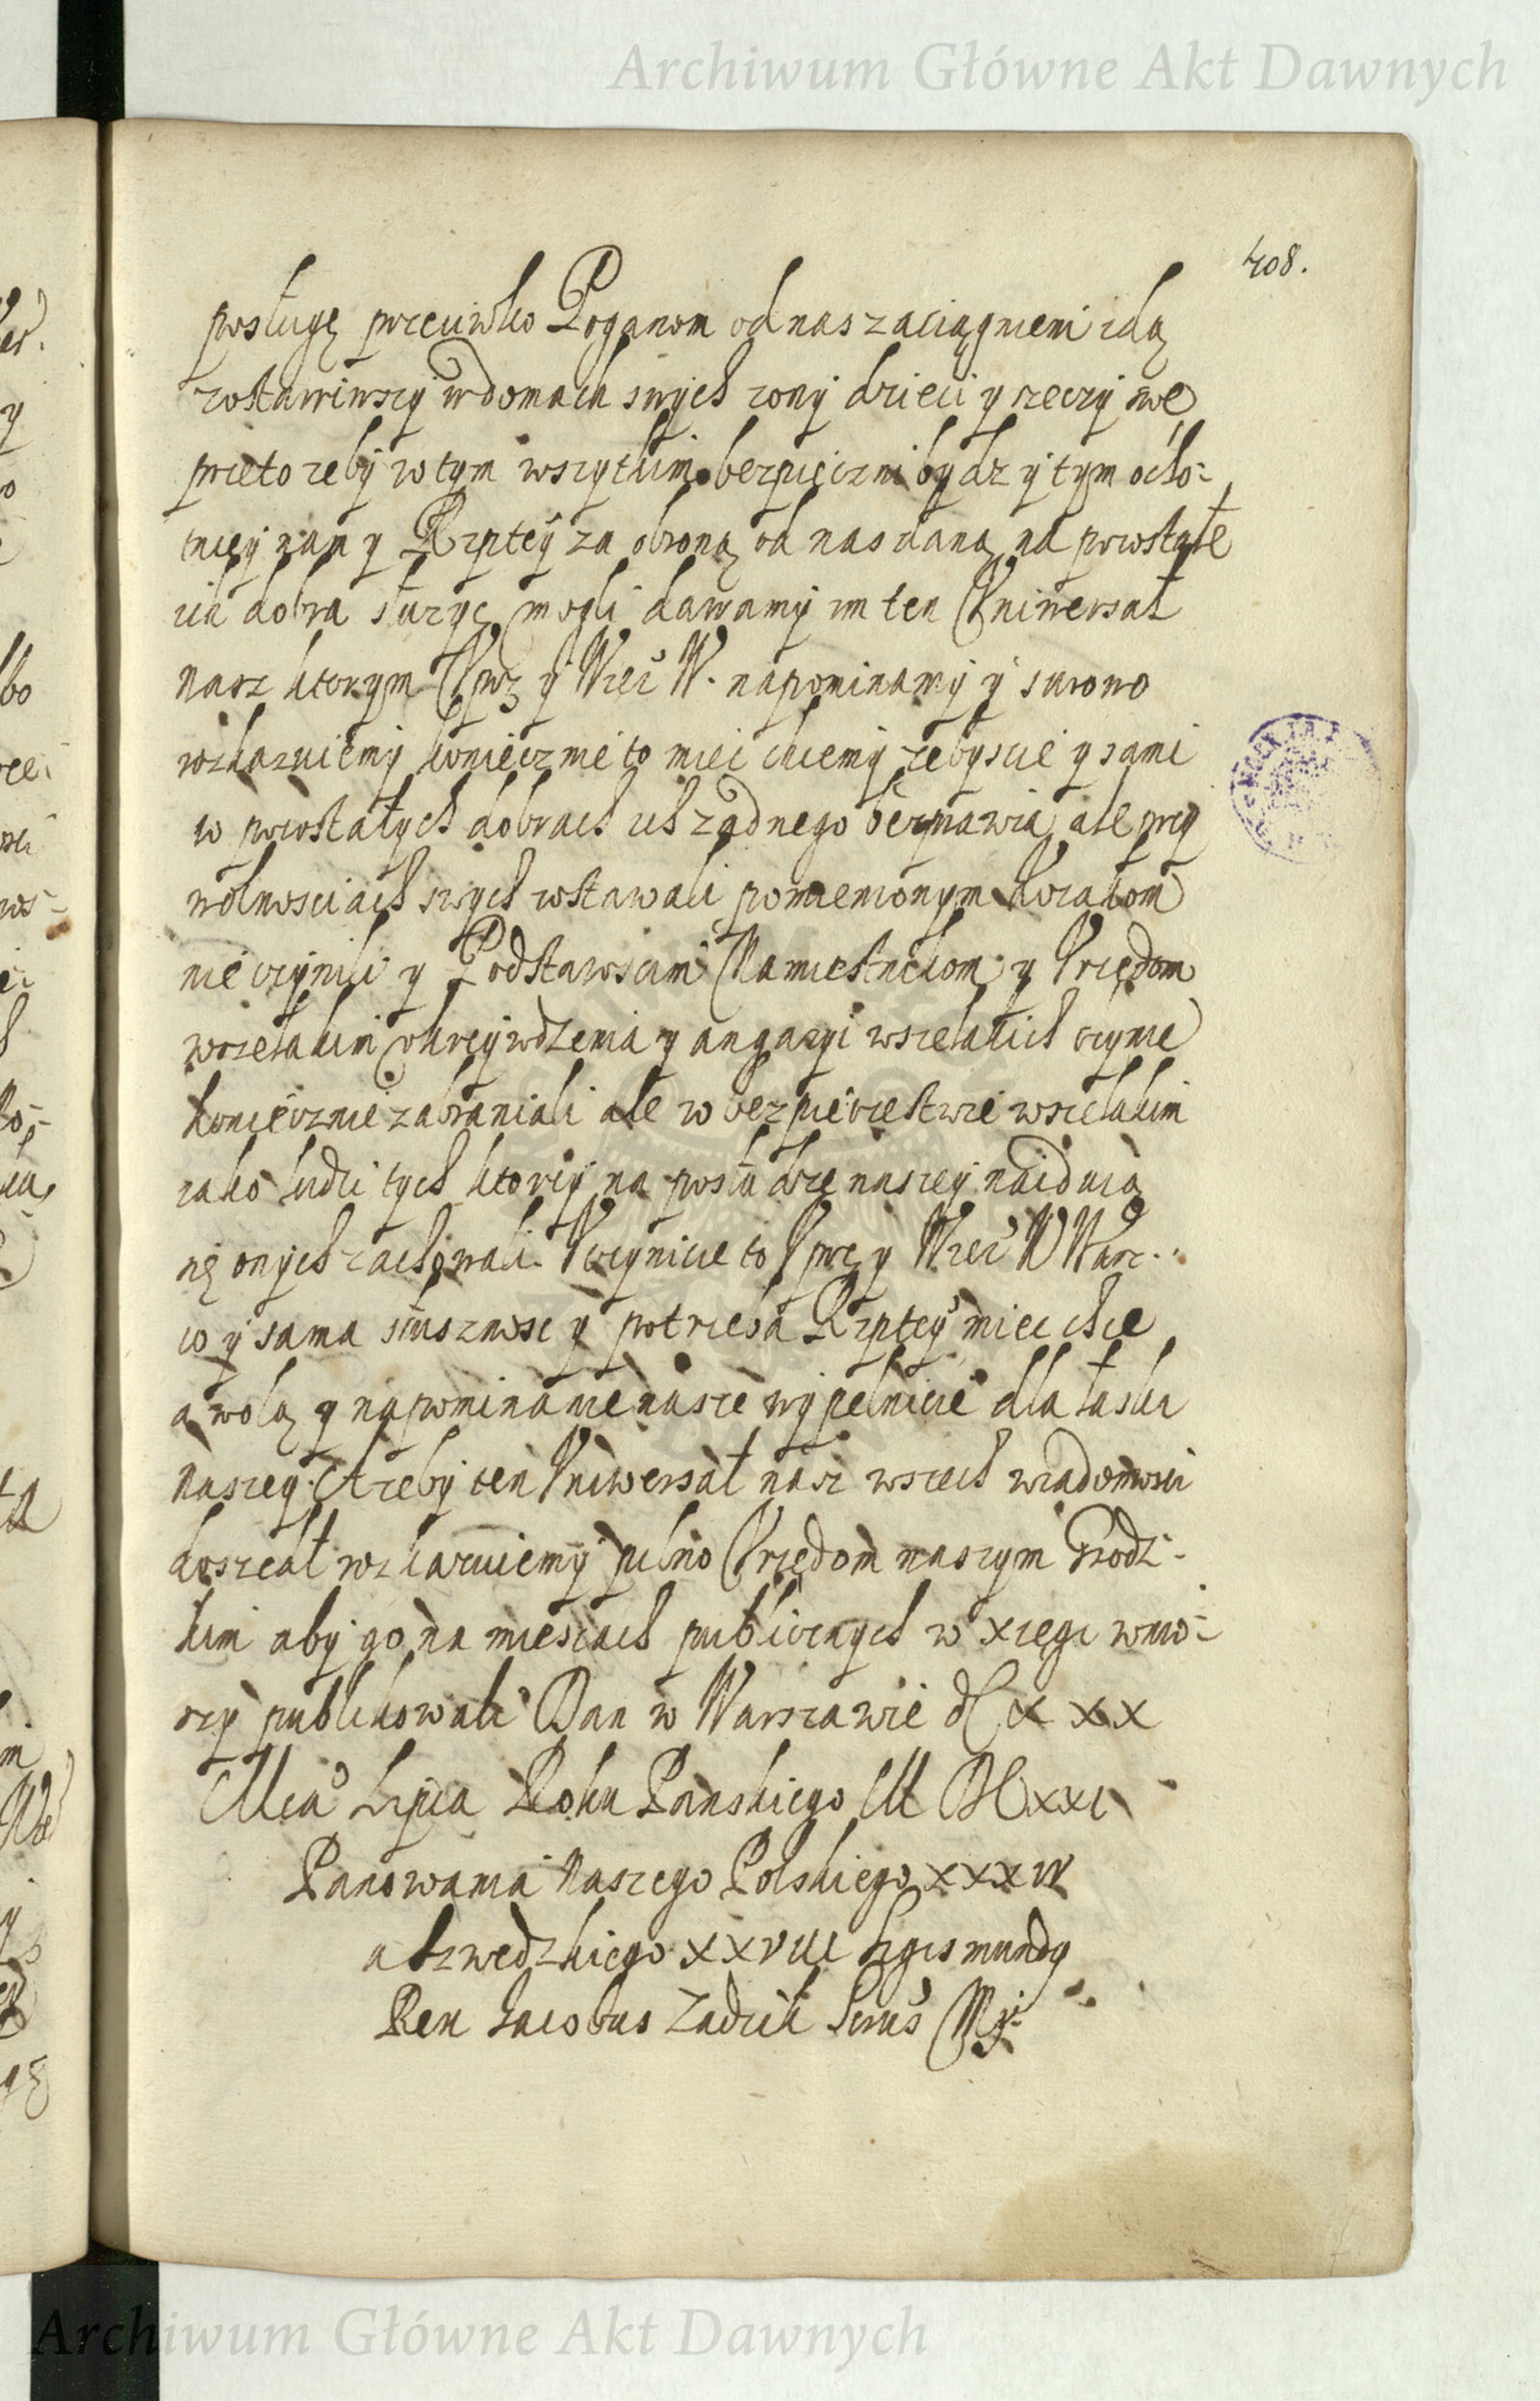 Archiwum Główne Akt Dawnych
408.
posługę przeciwko Poganom od nas zaciągnieni idą
zostawiwszy w domach swych zony dzieci y rzeczy swe
przeto zeby w tym wszytkim bezpieczni bydz y tym ocho-
tniey nam y Rzptey za obroną od nas daną na pozostałe
ich dobra słuzyc mogli dawamy im ten Uniwersał
nasz ktorym Uprz y Wier W. napominamy y surowo
wzkazuiemy koniecznie to miec chcemy zebyscie y sami
w pozostałych dobrach ich zadnego bezprawia ale przy
wolnosciach swych zostawali pomienionym kozakom
nie czynili y Podstaroscim Namiestnikom y Urzędom
wszelakim ukrzywdzenia y angaryi wszelakich czynic
koniecznie zabraniali ale w bezpieczenstwie wszelakim
iako ludzi tych ktorzy na posłudze naszey naiduią
się onych zachowali. Uczynicie to Uprz y Wier W Wasz.
co y sama słusznosc y potrzeba Rzptey miec chce
a wolą y napominanie nasze wypełnicie dla łaski
naszey. A zeby ten Uniwersał nasz wszech wiadomosci
doszedł wzkazuiemy pilno Urzędom naszym Grodz-
kim aby go na miescach publicznych w xięgi wpiso-
szy publikowali Dan w Warszawie d XXX
Mca Lipca Roku Panskiego M DCXXI
Panowania Naszego Polskiego XXXIV
a Szwedzkiego XXVIII Sigismundg
Rex Jacobus Zadzik Secrus Mpr
Archiwum Główne Akt Dawnych